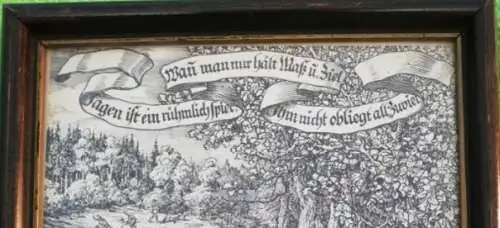 Jagen ist ein rühmlich spiel
Wañ man nur hält Maß u. Ziel
Ihm nicht obliegt all Zuviel